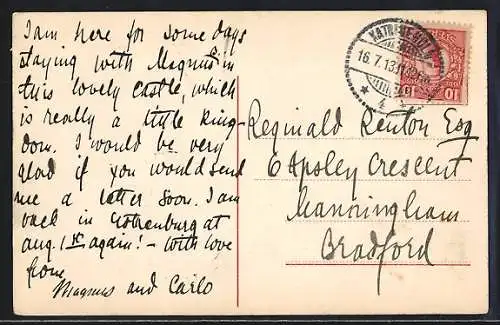 I am here for some days
staying with Magnus in
this lovely castle, which
is really a little king-
dom. I would be very
glad if you would send
me a letter soon. I am
back in Gothenburg at
aug. 1st again! - With love
from
Magnus and Carlo
16.7.13
4
10
Reginald Renton Esq
6 Apsley Crescent
Manningham
Bradford